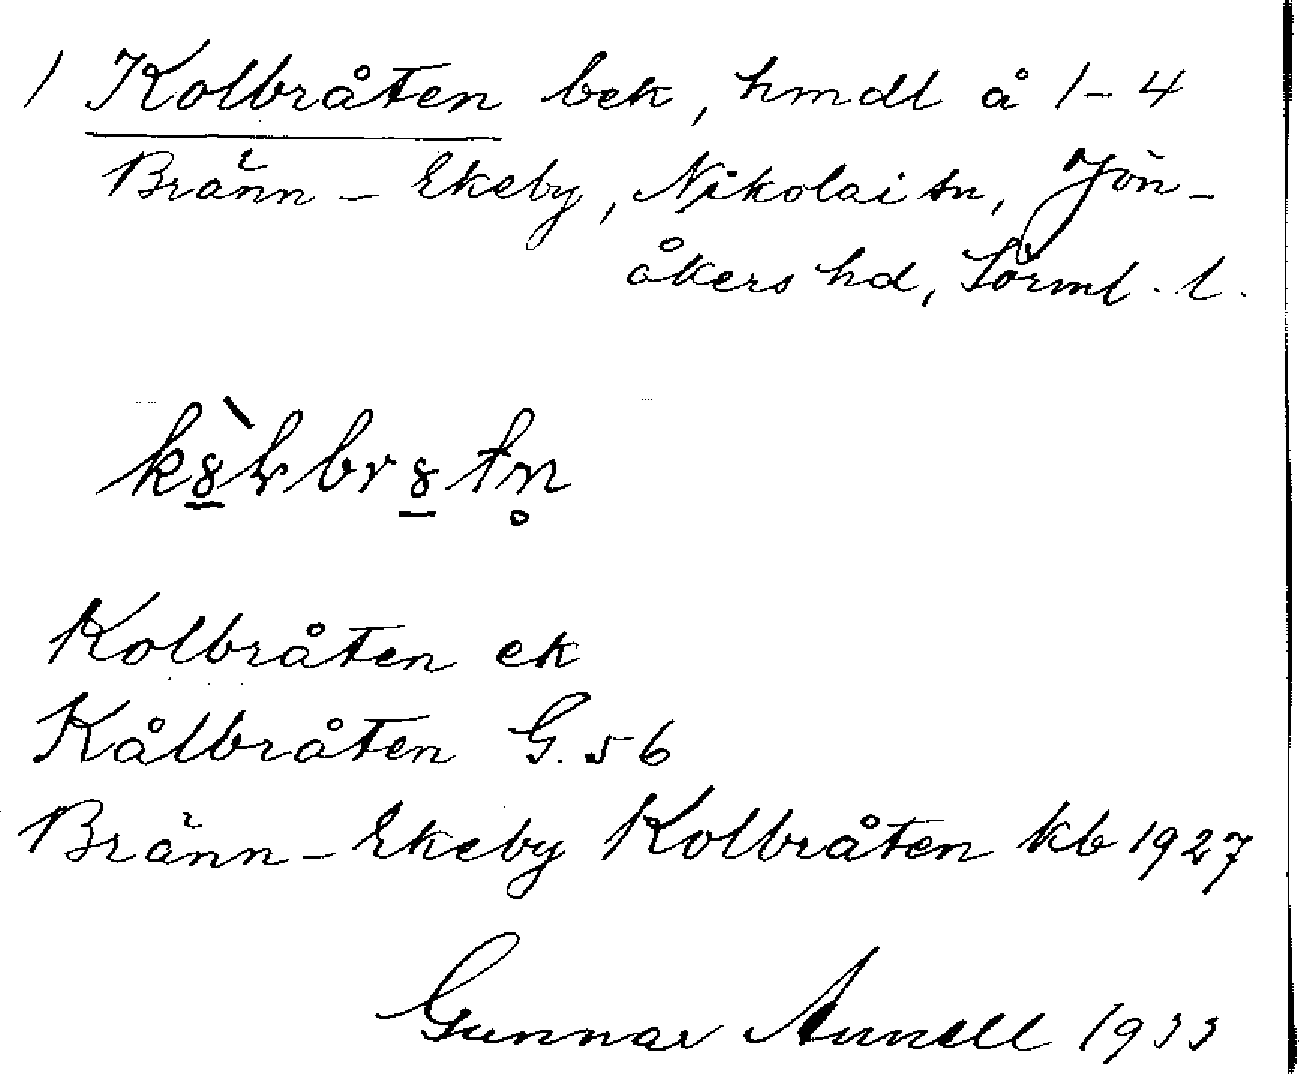 1 Kolbråten bek, hmdl å 1-4
Bränn-Ekeby, Nikolai sn, Jön-
åkers hd, Sörml. l.
Kolbråten ek
Kålbråten G. 56
Bränn-Ekeby Kolbråten kb 1927
Gunnar 1933